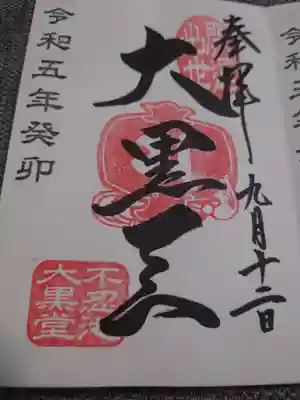 奉拝
九月十二日
大黒天
令和五年癸卯
不忍池
大黒堂